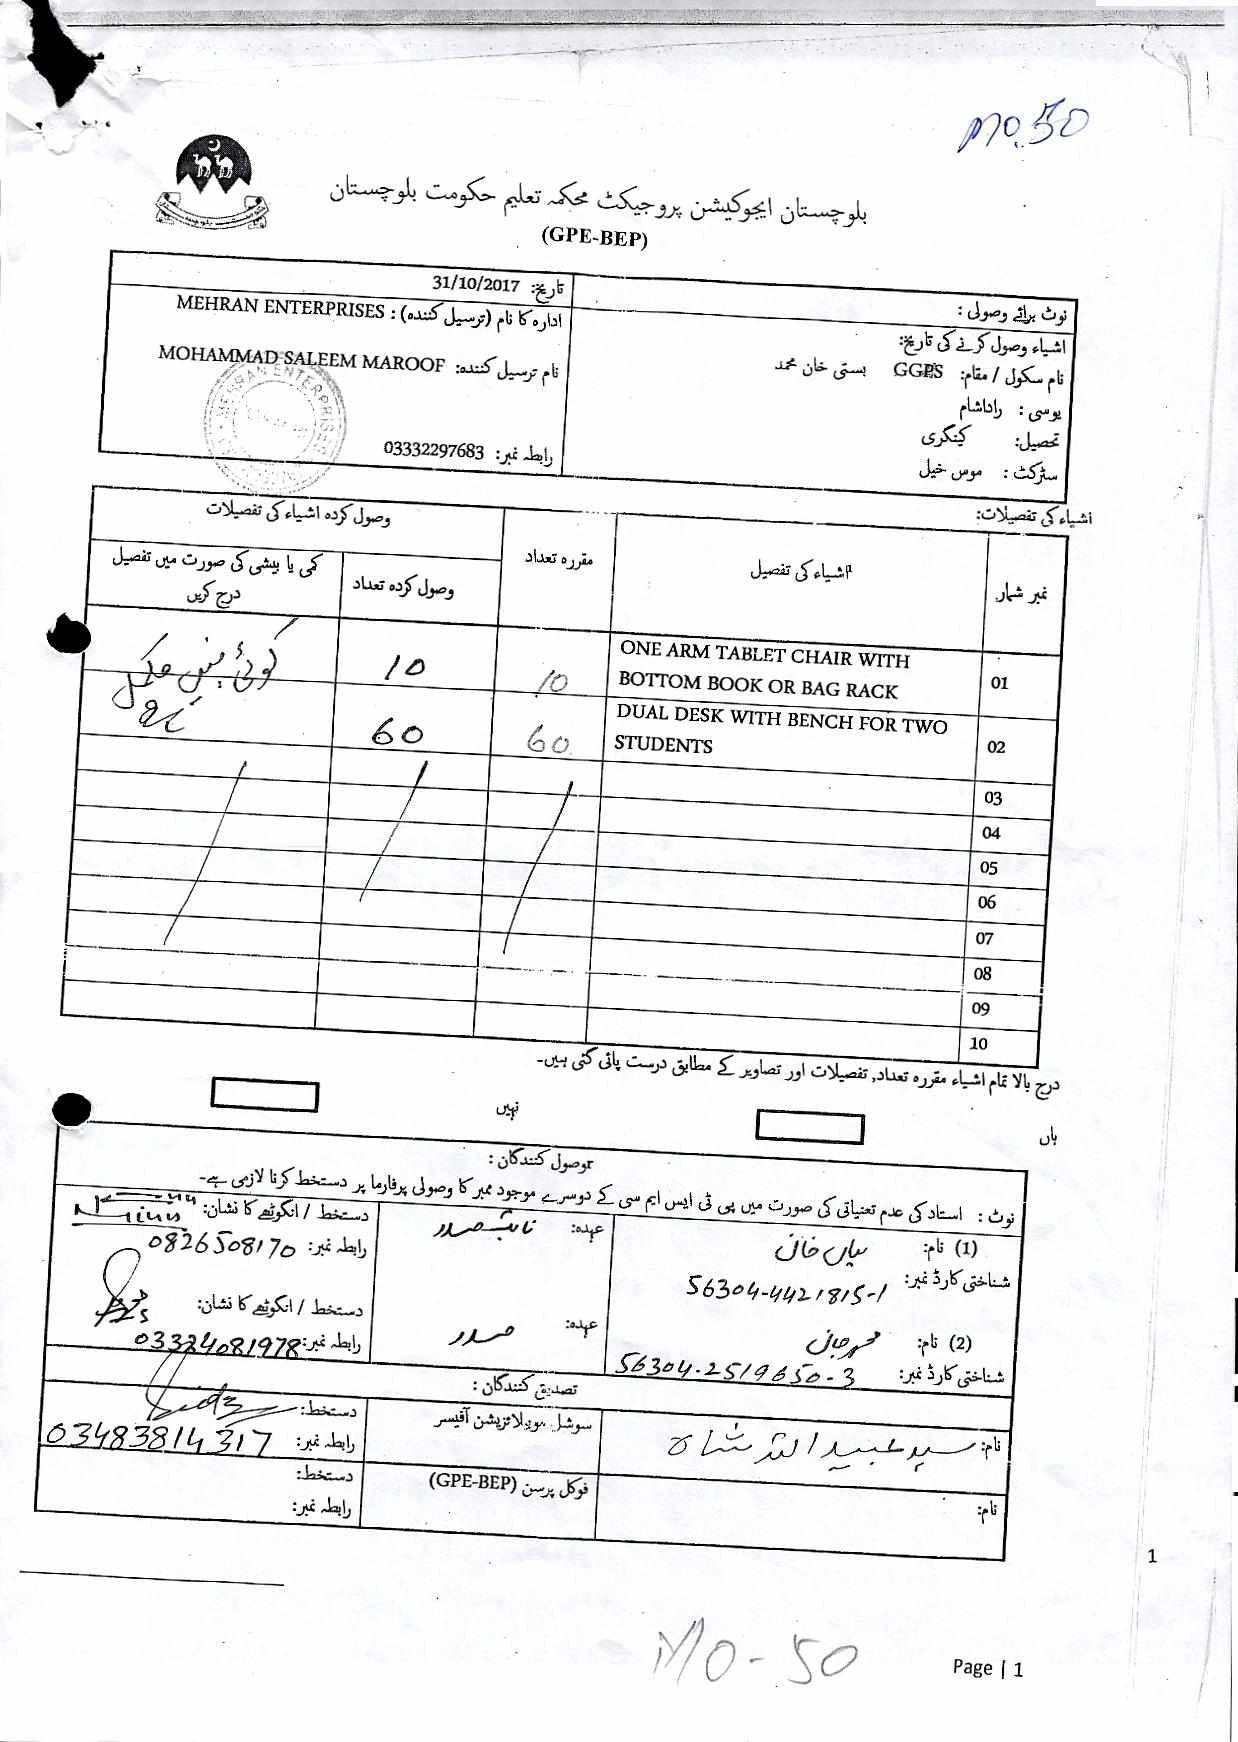 MO.50
بلوچستان ایجوکیشن پروجیکٹ محکمہ تعلیم حکومت بلوچستان
(GPE-BEP)
نوٹ برائے وصولی :
اشیاء وصول کرنے کی تاریخ:
نام سکول / مقام: GGPS بستی خان محمد
یوسی : راداشام
تحصیل: کینگری
سٹرکٹ : موس خیل
تاریخ: 31/10/2017
ادارہ کا نام (ترسیل کنندہ) : MEHRAN ENTERPRISES
نام ترسیل کنندہ: MOHAMMAD SALEEM MAROOF
رابطہ نمبر: 03332297683
MEHRAN ENTERPRISES
اشیاء کی تفصیلات:
نمبر شمار
اشیاء کی تفصیل
مقررہ تعداد
وصول کردہ اشیاء کی تفصیلات
وصول کردہ تعداد
کمی یا بیشی کی صورت میں تفصیل درج کریں
01 ONE ARM TABLET CHAIR WITH BOTTOM BOOK OR BAG RACK 10 10
02 DUAL DESK WITH BENCH FOR TWO STUDENTS 60 60
03
04
05
06
07
08
09
10
درج بالا تمام اشیاء مقررہ تعداد, تفصیلات اور تصاویر کے مطابق درست پائی گئی ہیں۔
ہاں
نہیں
وصول کنندگان :
نوٹ : استاد کی عدم تعنیاتی کی صورت میں پی ٹی ایس ایم سی کے دوسرے موجود ممبر کا وصولی پرفارما پر دستخط کرنا لازمی ہے۔
(1) نام: خان عہدہ: نائب صدر دستخط / انگوٹھے کا نشان:
شناختی کارڈ نمبر: 56304-4421815-1 رابطہ نمبر: 0826508170
(2) نام: محمد جان عہدہ: صدر دستخط / انگوٹھے کا نشان:
شناختی کارڈ نمبر: 56304-2519650-3 رابطہ نمبر: 03334081978
تصدیق کنندگان :
نام: سید عبید اللہ شاہ سوشل موبلائزیشن آفیسر دستخط:
رابطہ نمبر: 03483814317
نام: فوکل پرسن (GPE-BEP) دستخط:
رابطہ نمبر:
1
MO-50
Page | 1